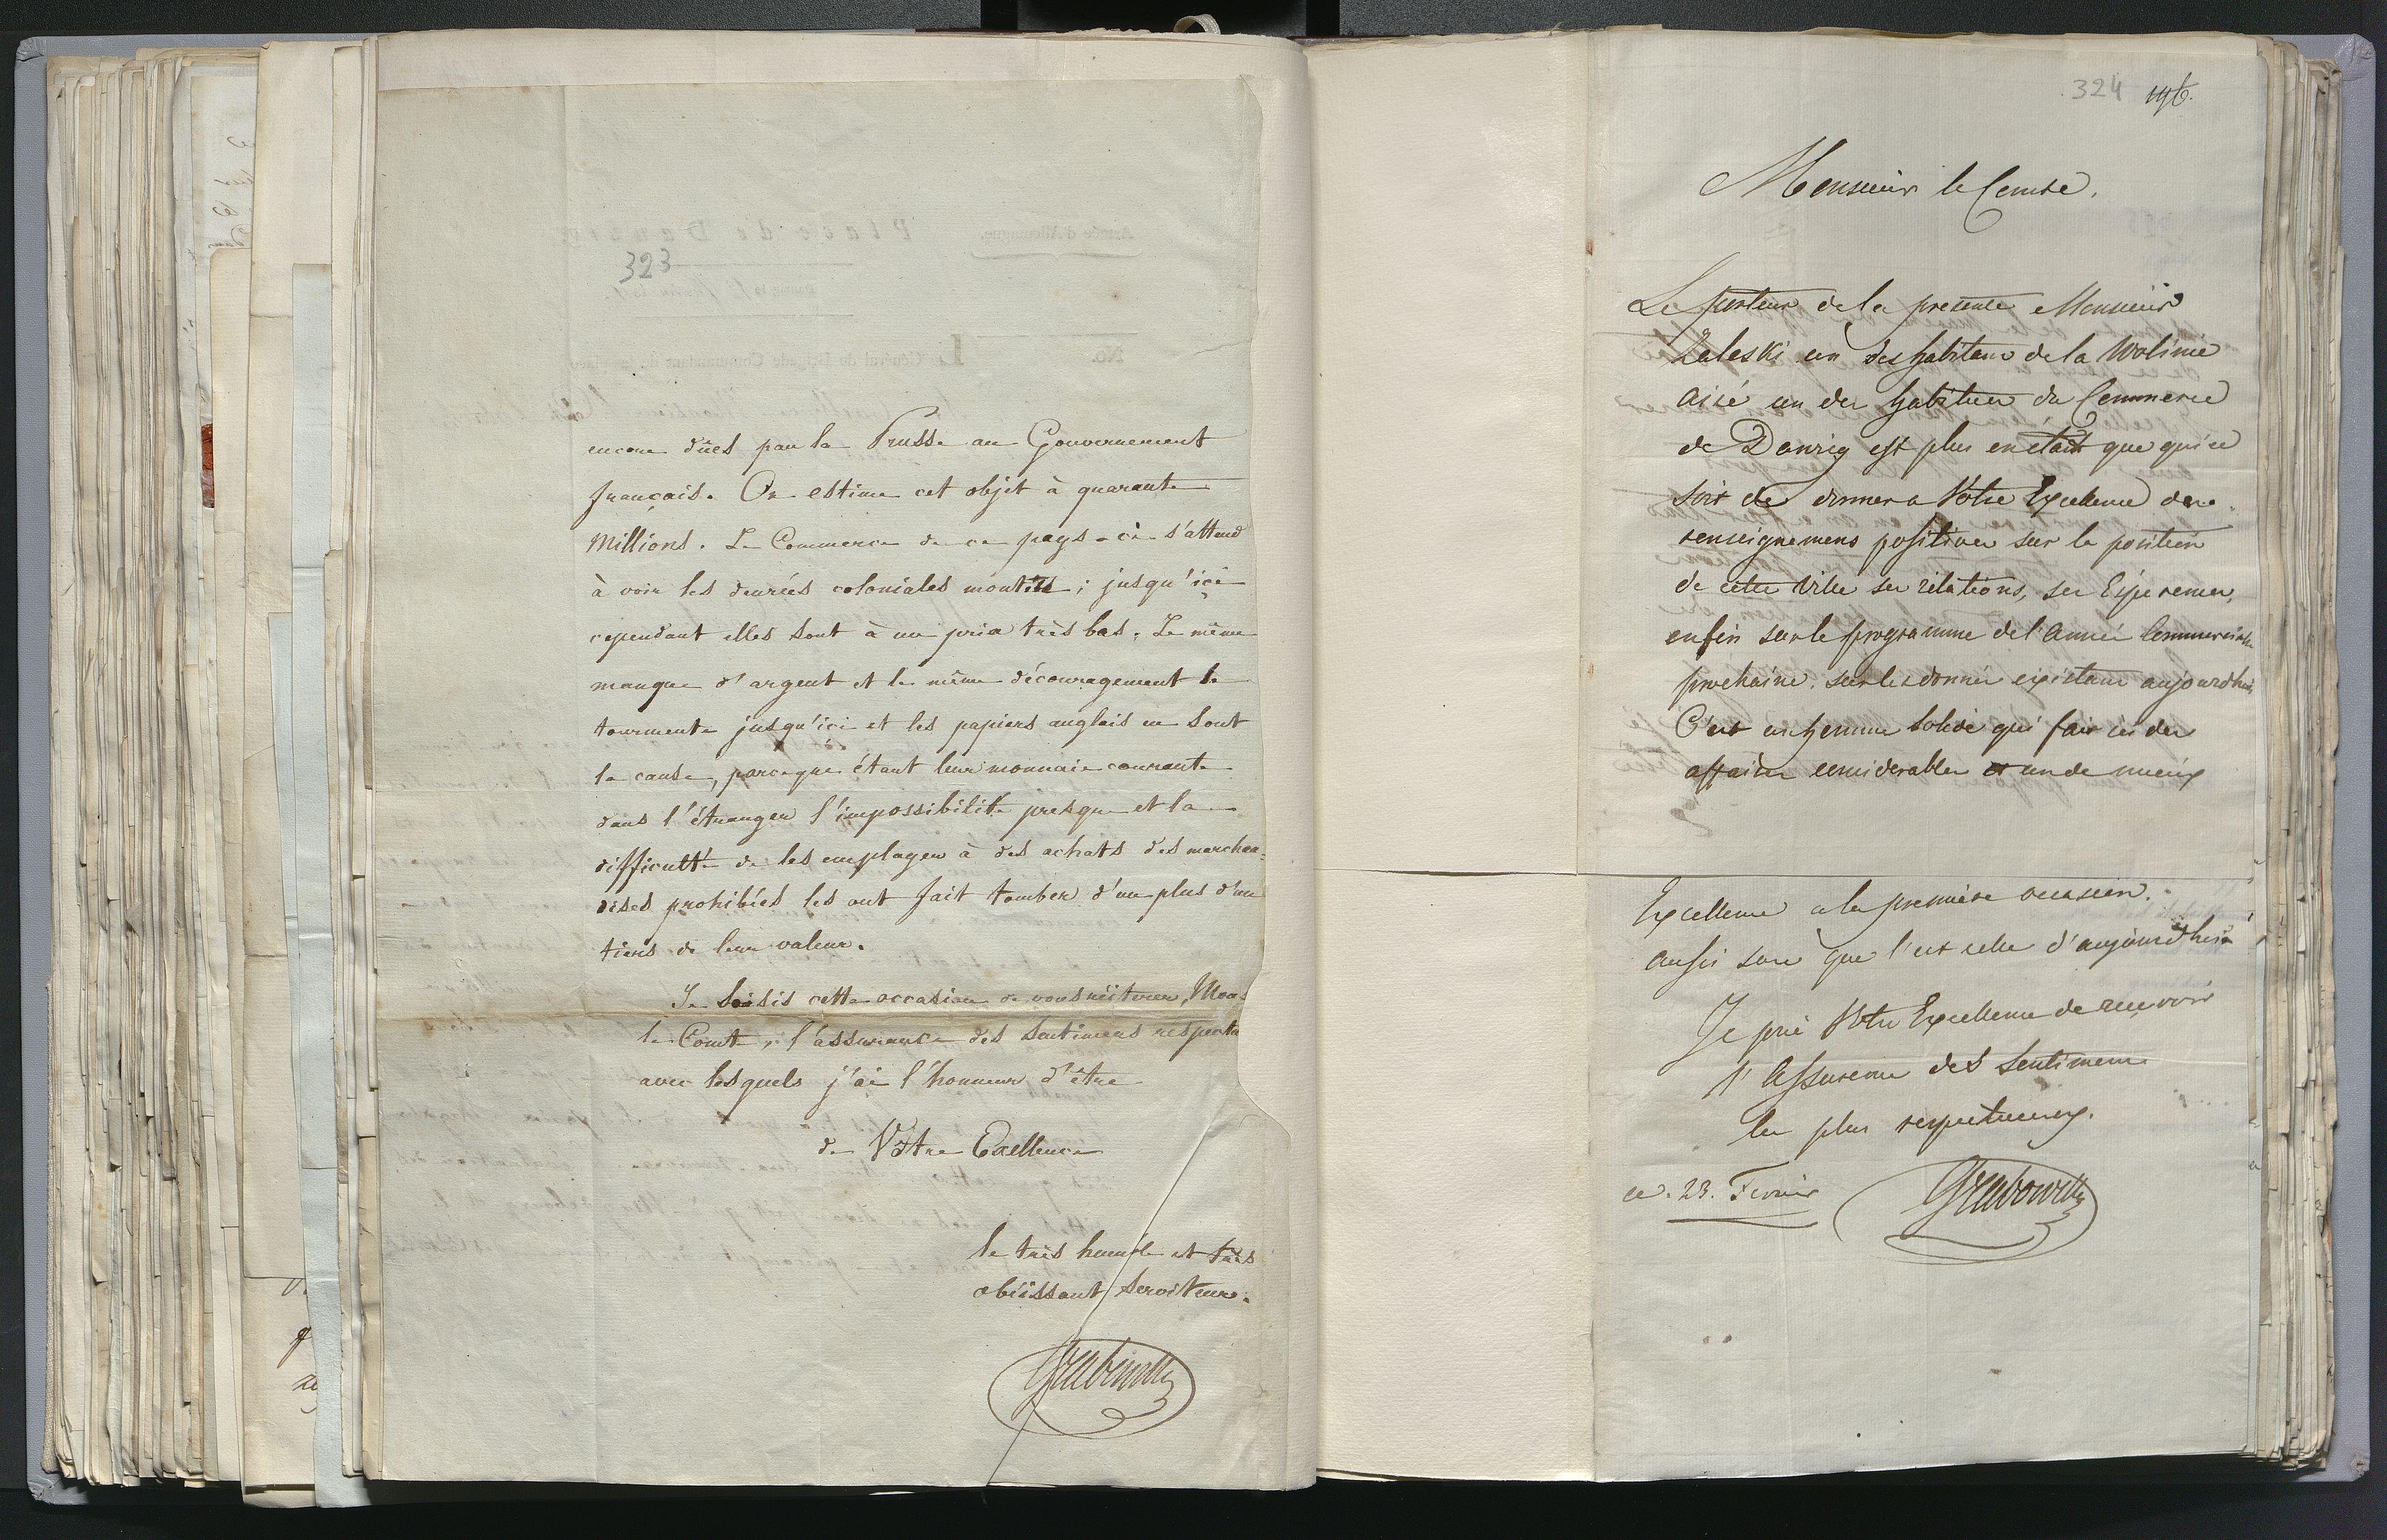 323
encore dûes par la Prusse au Gouvernement
français. On estime cet objet à quarante
Millions. Le Commerce de ce pays-ci s'attend
à voir les denrées coloniales montées; jusqu'ici
cependant elles sont à un prix très bas. Le même
manque d'argent et le même découragement le
tourmente jusqu'ici et les papiers anglais en sont
la cause, parceque étant leur monnaie courante
dans l'étranger l'impossibilité presque et la
difficulté de les employer à des achats des marchan=
dises prohibées les ont fait tomber d'un plus d'un
tiers de leur valeur.
Je saisis cette occasion de vous réiterer, Mons
le Comte, l'assurance des sentimens respectu
avec lesquels j'ai l'honneur d'être
de Vôtre Excellence
le très humble et très
obéissant serviteur.
Grabowski
324 196.
Monsieur le Comte.
Le porteur de la presente Monsieur
Zaleski un des habitans de la Wolinie
aisé un des habitues du Commerce
de Danzig est plus en etat que qui ce
soit de donner a Votre Excellence des
renseignemens positives sur la position
de cette ville ses relations, ses Esperences,
enfin sur le programme de l'année Commerciale
prochaine. sur les données existans aujourdhui,
C'est un homme solide qui fait ici des
affaires considerables et un de mieux
Excellence a la première occasion.
aussi sure que l'est celle d'aujourdhui
Je prie Votre Excellence de recevoir
l'Assurence des Sentimens
les plus respectueux.
ce. 23. Fevrier Grabowski